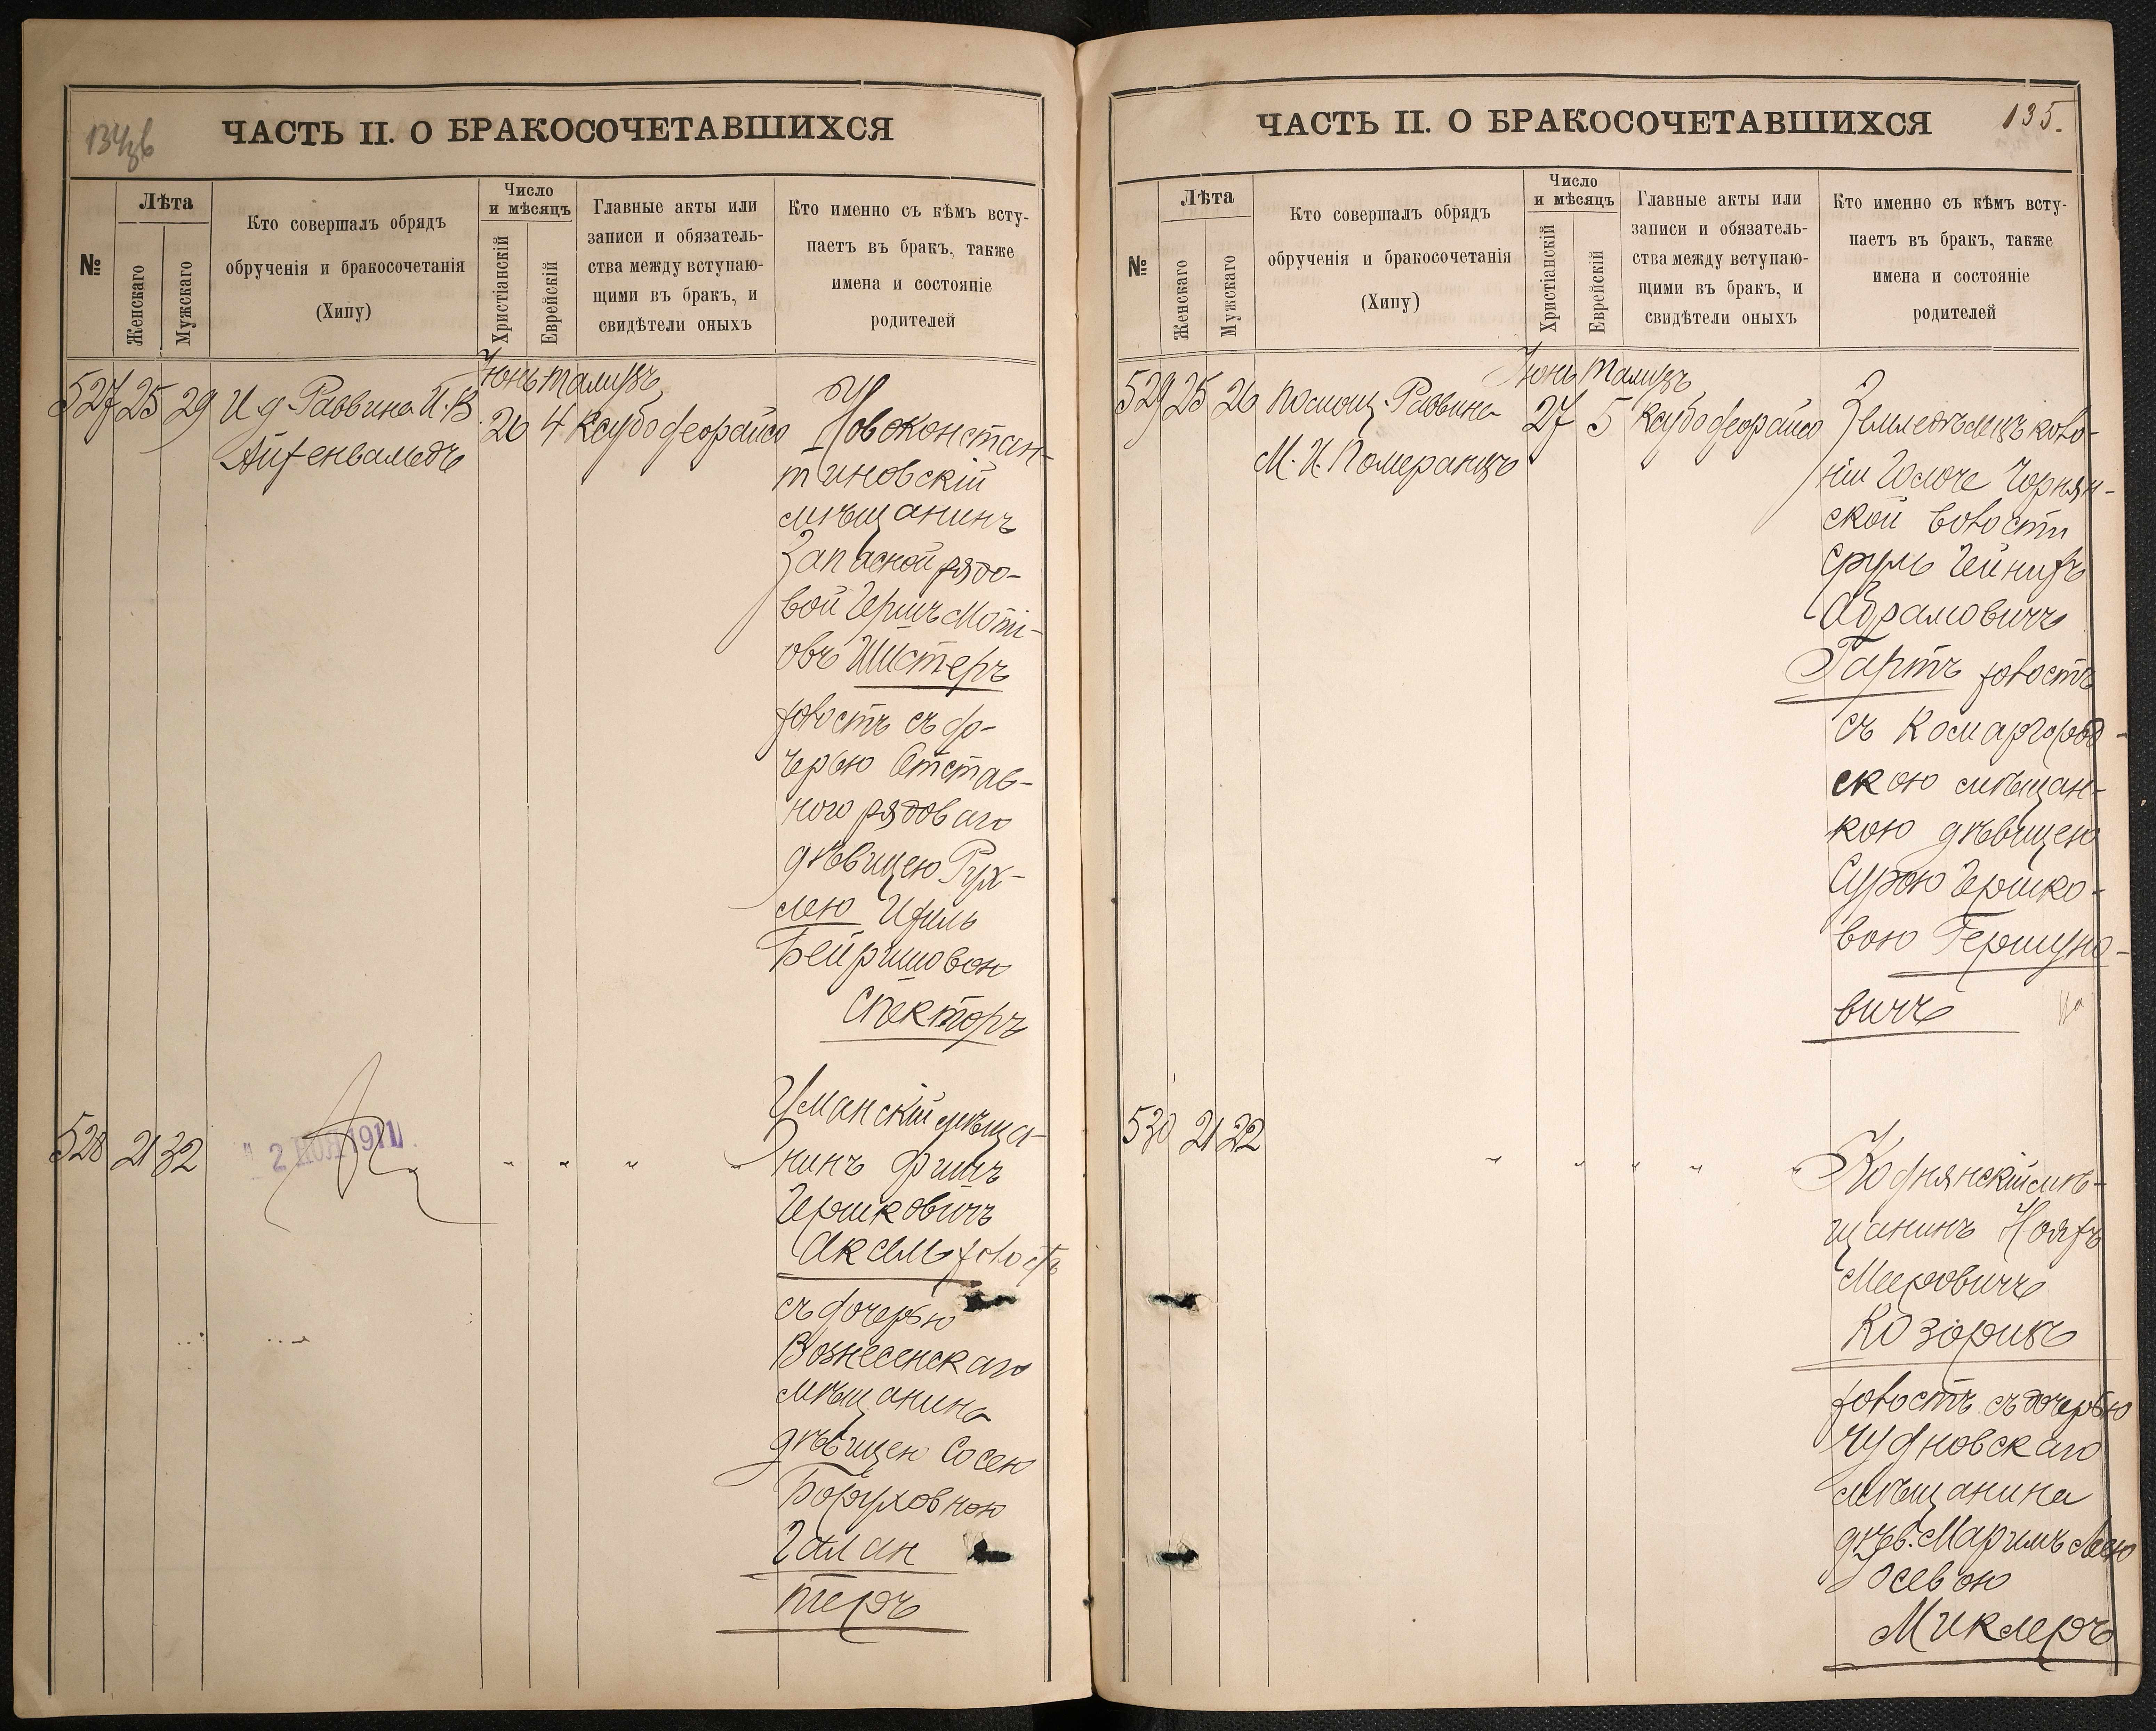 134об
ЧАСТЬ II. О БРАКОСОЧЕТАВШИХСЯ
№
Лѣта
Женскаго
Мужскаго
Кто совершалъ обрядъ
обрученія и бракосочетанія
(Хипу)
Число
и мѣсяцъ
Христіанскій
Еврейскій
Главные акты или
записи и обязатель-
ства между вступаю-
щими въ бракъ, и
свидѣтели оныхъ
Кто именно съ кѣмъ всту-
паетъ въ бракъ, также
имена и состояніе
родителей
Іюнь Тамузъ
527 25 29 И. д. Раввина И. В
Айзенвальдъ
26 4 Ксубо деорайсо
Новоконстан-
тиновскій
мѣщанинъ
Запасной рядо-
вой Гершъ Моті-
овъ Шистеръ
холостъ съ до-
черью Отстав-
ного рядоваго
дѣвицею Рух-
лею
Бейришовою
Спекторъ
528 21 32
2 НОЯ 1911
" " " "
Уманскій мѣща-
нинъ
Гершковичъ
Аксель холостъ
съ дочерью
Вознесенскаго
мѣщанина
дѣвицею Сосею
Боруховною
Галан
теръ
ЧАСТЬ II. О БРАКОСОЧЕТАВШИХСЯ
135.
№
Лѣта
Женскаго
Мужскаго
Кто совершалъ обрядъ
обрученія и бракосочетанія
(Хипу)
Число
и мѣсяцъ
Христіанскій
Еврейскій
Главные акты или
записи и обязатель-
ства между вступаю-
щими въ бракъ, и
свидѣтели оныхъ
Кто именно съ кѣмъ всту-
паетъ въ бракъ, также
имена и состояніе
родителей
Іюнь Тамузъ
529 25 26 Помощ. Раввина
М. И. Померанцъ
27 5 Ксубо деорайсо
Земледѣлецъ коло-
ніи
ской волости
Сруль Гейнихъ
Абрамовичъ
Гартъ холостъ
съ Комаргород-
скою мѣщан-
кою дѣвицею
Сурою Гершко-
вою Гершуно-
вичъ
530 21 22
" " " " "
Коднянскій мѣ-
щанинъ
Мееровичъ
Козоривъ
холостъ съ дочерью
Чудновскаго
мѣщанина
дѣв. Маримъ Леею
Іосевою
Миклеръ